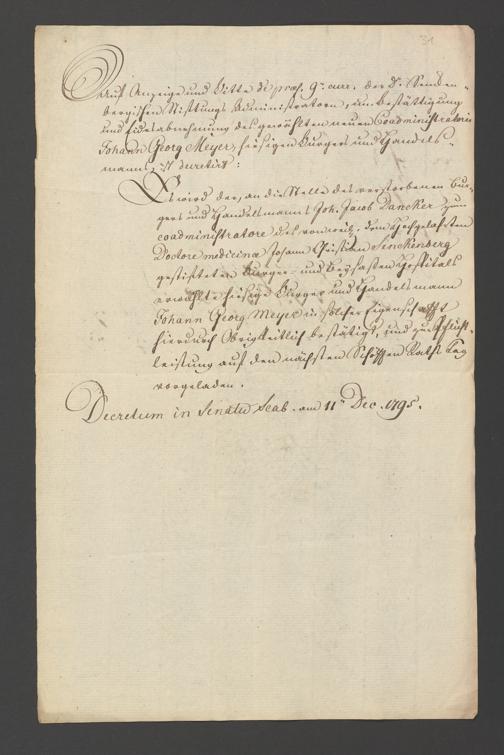 31
Auf Anzeige und Bitte de præs. 9ns curr. der Dr. Senken-
bergischen Stiftungs Administratorn, um Bestättigung
und Eidesabnehmung des gewählten neuen Coadministratoris
Johann Georg Meyer, hiesigen Burgers und Handels-
manns, ist decretirt:
Es wird der, an die Stelle des verstorbenen Bur-
gers und Handelsmanns Joh. Jacob Dancker zum
coadministratore des von weil. dem Hochgelahrten
Doctore medicinæ Johann Christian Senckenberg
gestifteten Burger- und Beysassen Hospitals
erwählte hiesige Burger und Handelsmann
Johann Georg Meyer in solcher Eigenschafft
hierdurch Obrigkeitlich bestätigt, und zur Pflicht-
leistung auf den nächsten Schöffen Raths Tag
vorgeladen.
Decretum in Senatu Scab. am 11n Dec. 1795.